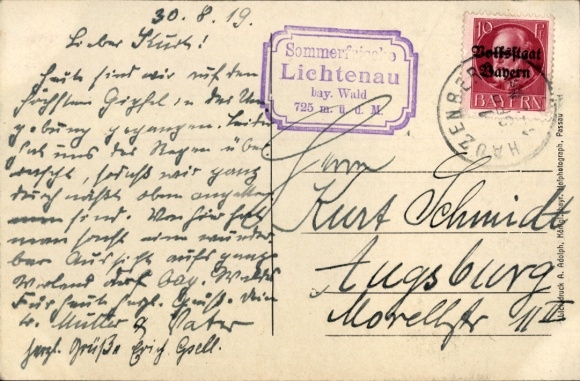 30.8.19.
Lieber Kurt!
Heute sind wir auf den
höchsten Gipfel in der Um
gebung gegangen. Leider
hat uns der Regen über
rascht, sodaß wir ganz
durchnäßt oben angekom
men sind. Von hier hat
man sonst eine wunder
bare Aussicht aufs ganze
bay. Wald
Für heute herzl. Grüße. Dein
tr. Mutter & Vater
herzl. Grüße Erich Gsell.
Sommerfrische
Lichtenau
bay. Wald
725 m. ü. d. M.
10 PF
Volksstaat
Bayern
BAYERN
HAUZENBERG
Herrn
Kurt Schmidt
Augsburg
Morellstr 11 II
Lichtdruck A. Adolph, Königl. bayr. Hofphotograph, Passau